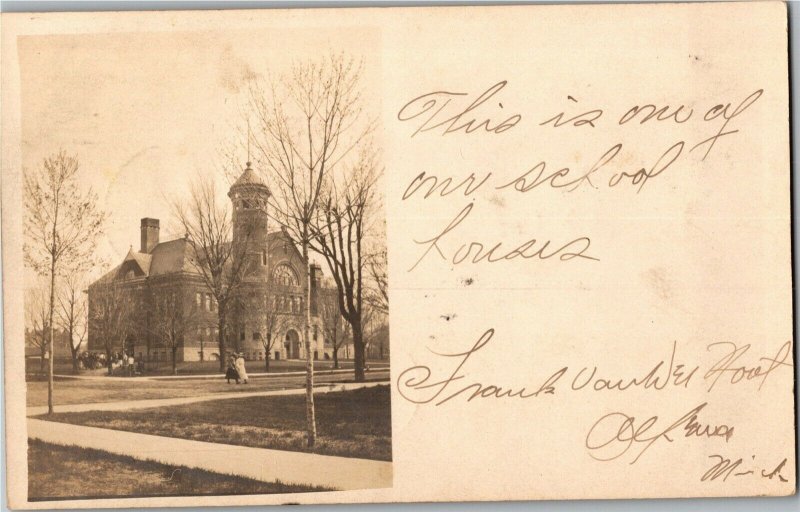 This is one of
our school
houses
Frank
Mich